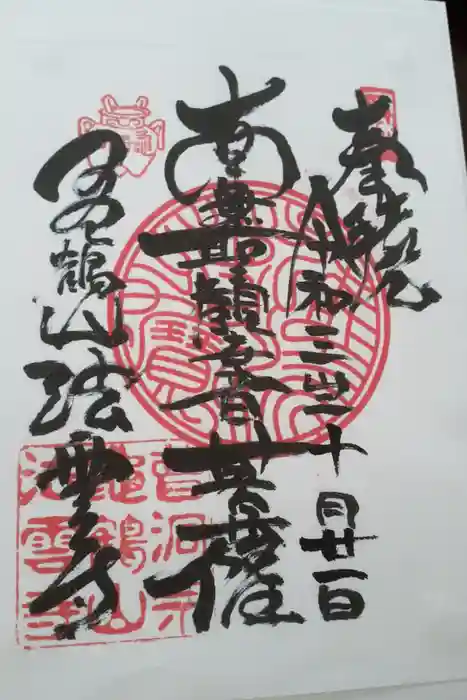 奉拝
令和三年十月廿一日
南無聖観世音菩薩
亀鶴山法雲寺
曹洞宗
亀鶴山
法雲寺